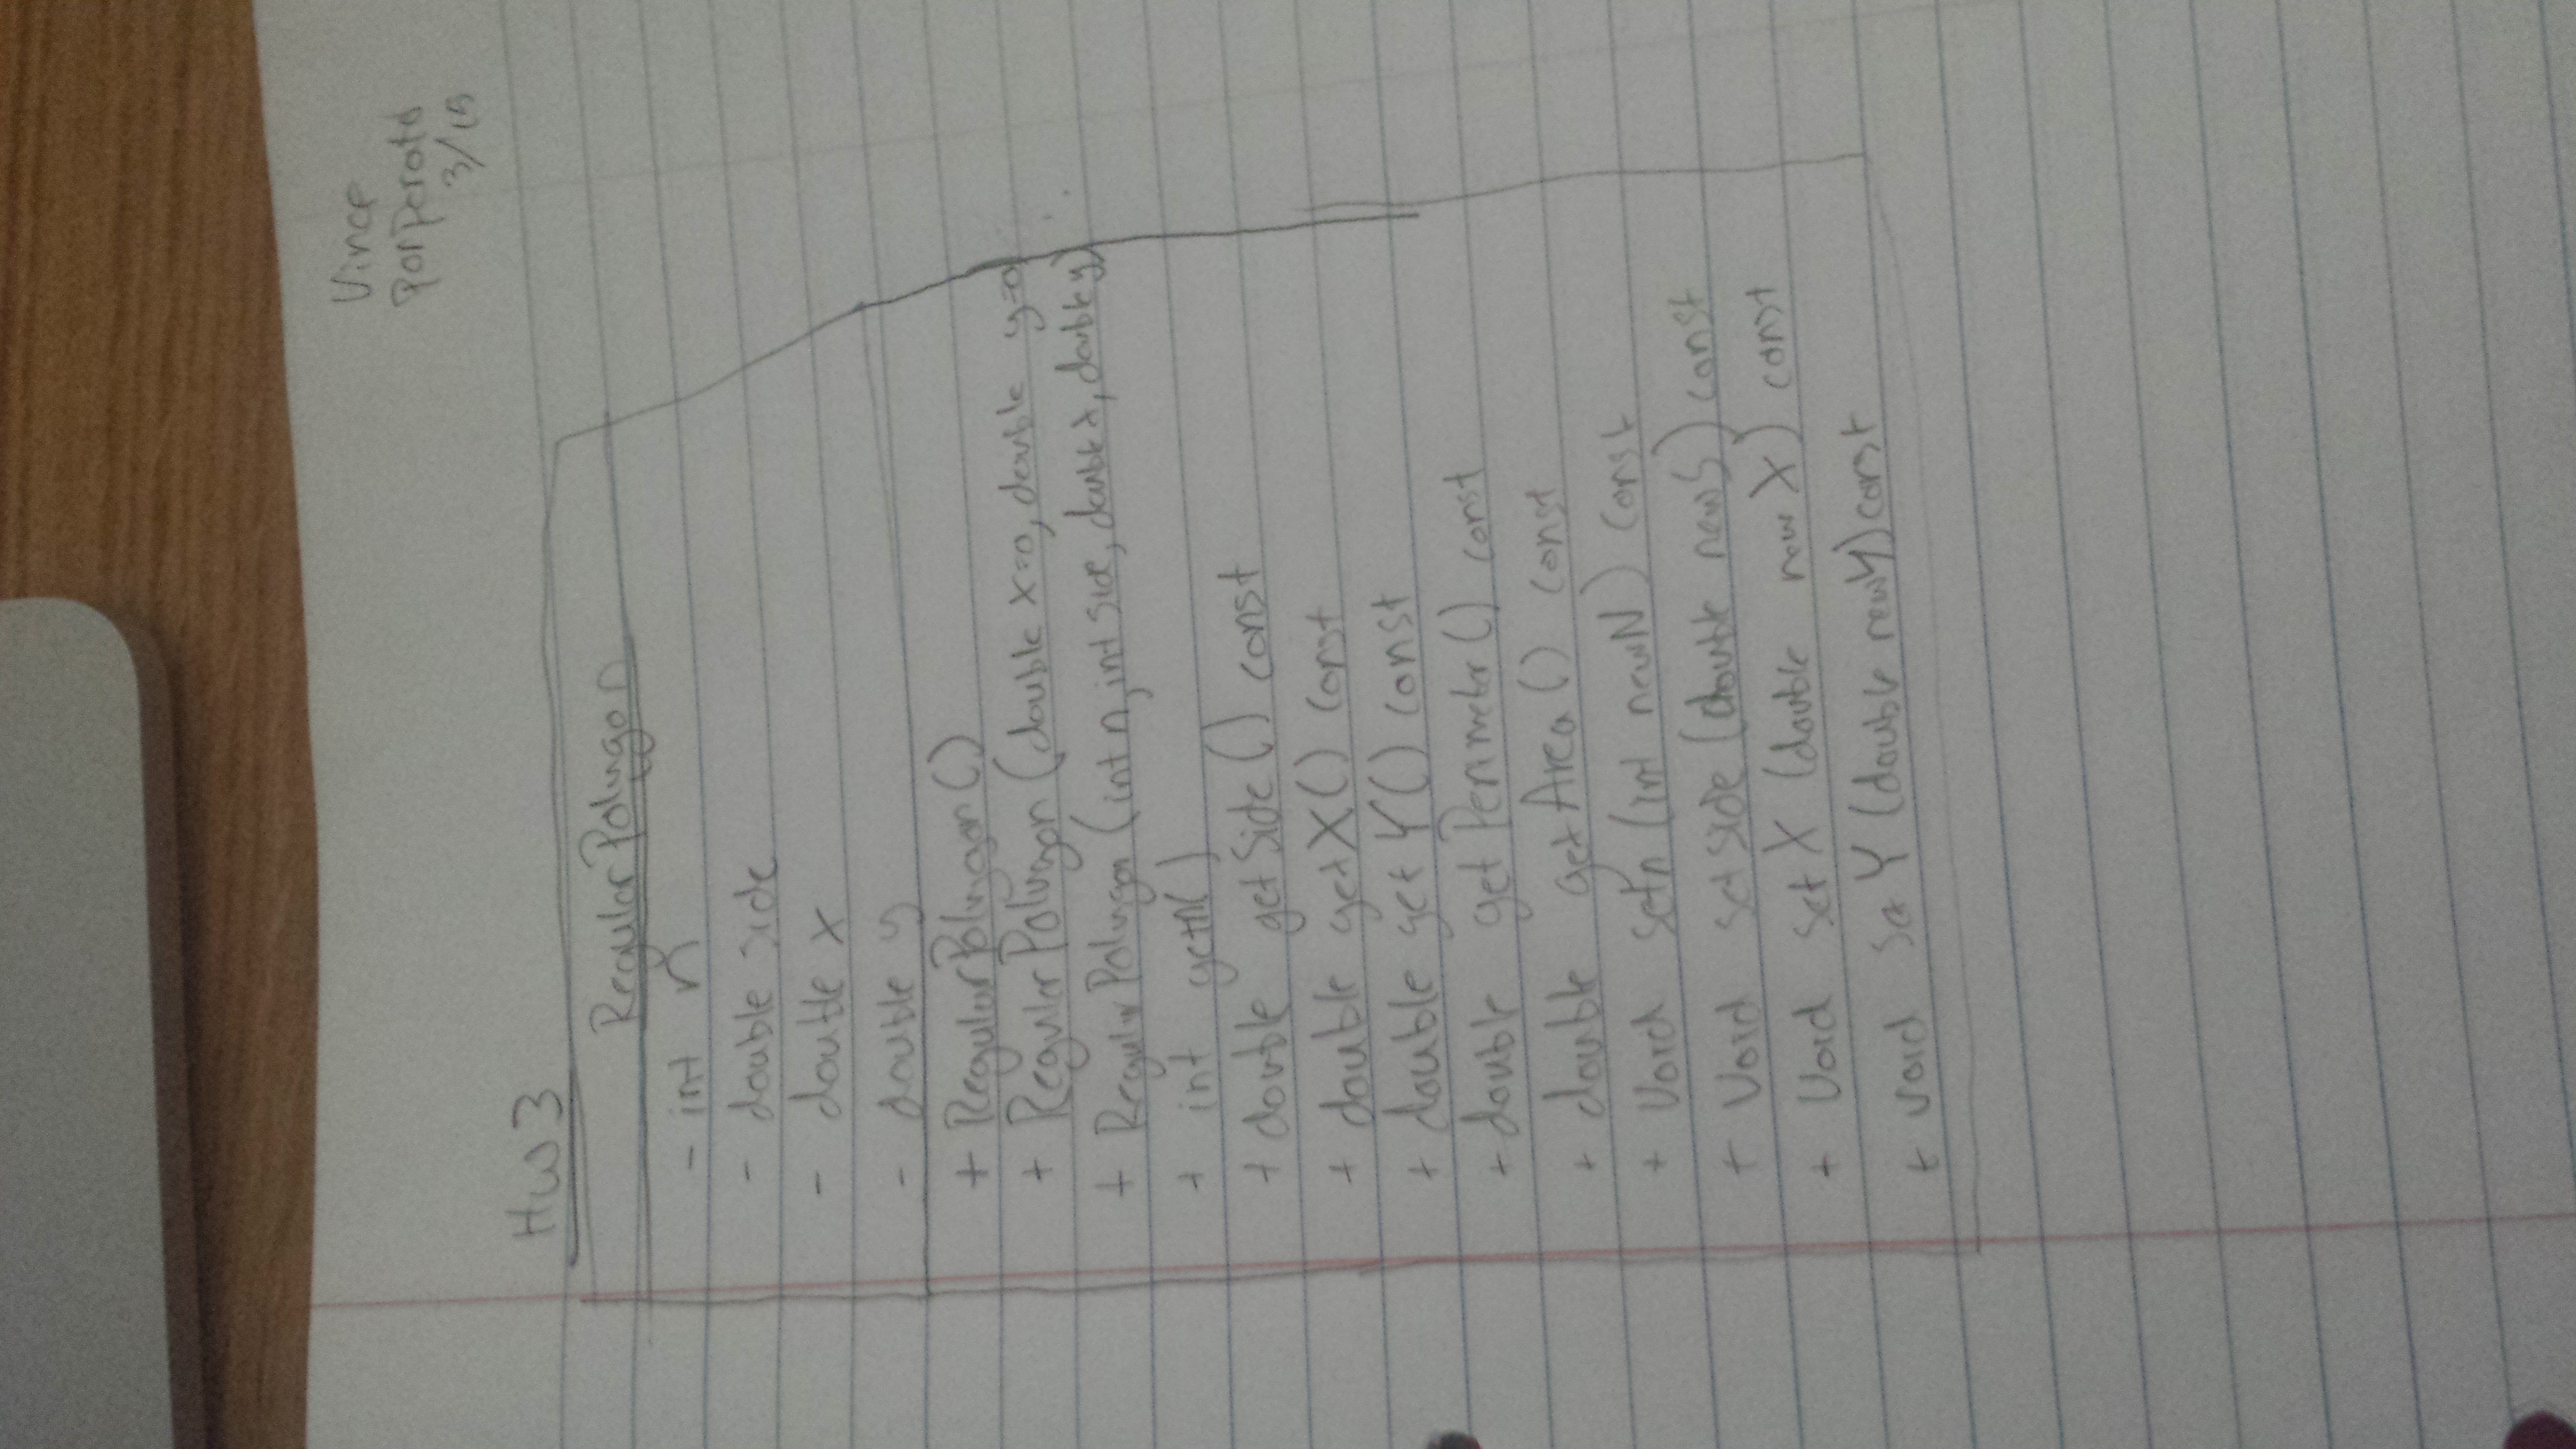 Vince
3/15
HW3
RegularPolygon
- int n
- double side
- double x
- double y
+ RegularPolygon()
+ RegularPolygon (double x=0, double y=0)
+ RegularPolygon (int n, int side, double x, double y)
+ int getn()
+ double getSide() const
+ double getX() const
+ double getY() const
+ double getPerimeter() const
+ double getArea() const
+ Void setn (int newN) const
+ Void setside (double newS) const
+ Void setX (double newX) const
+ void setY (double newY) const